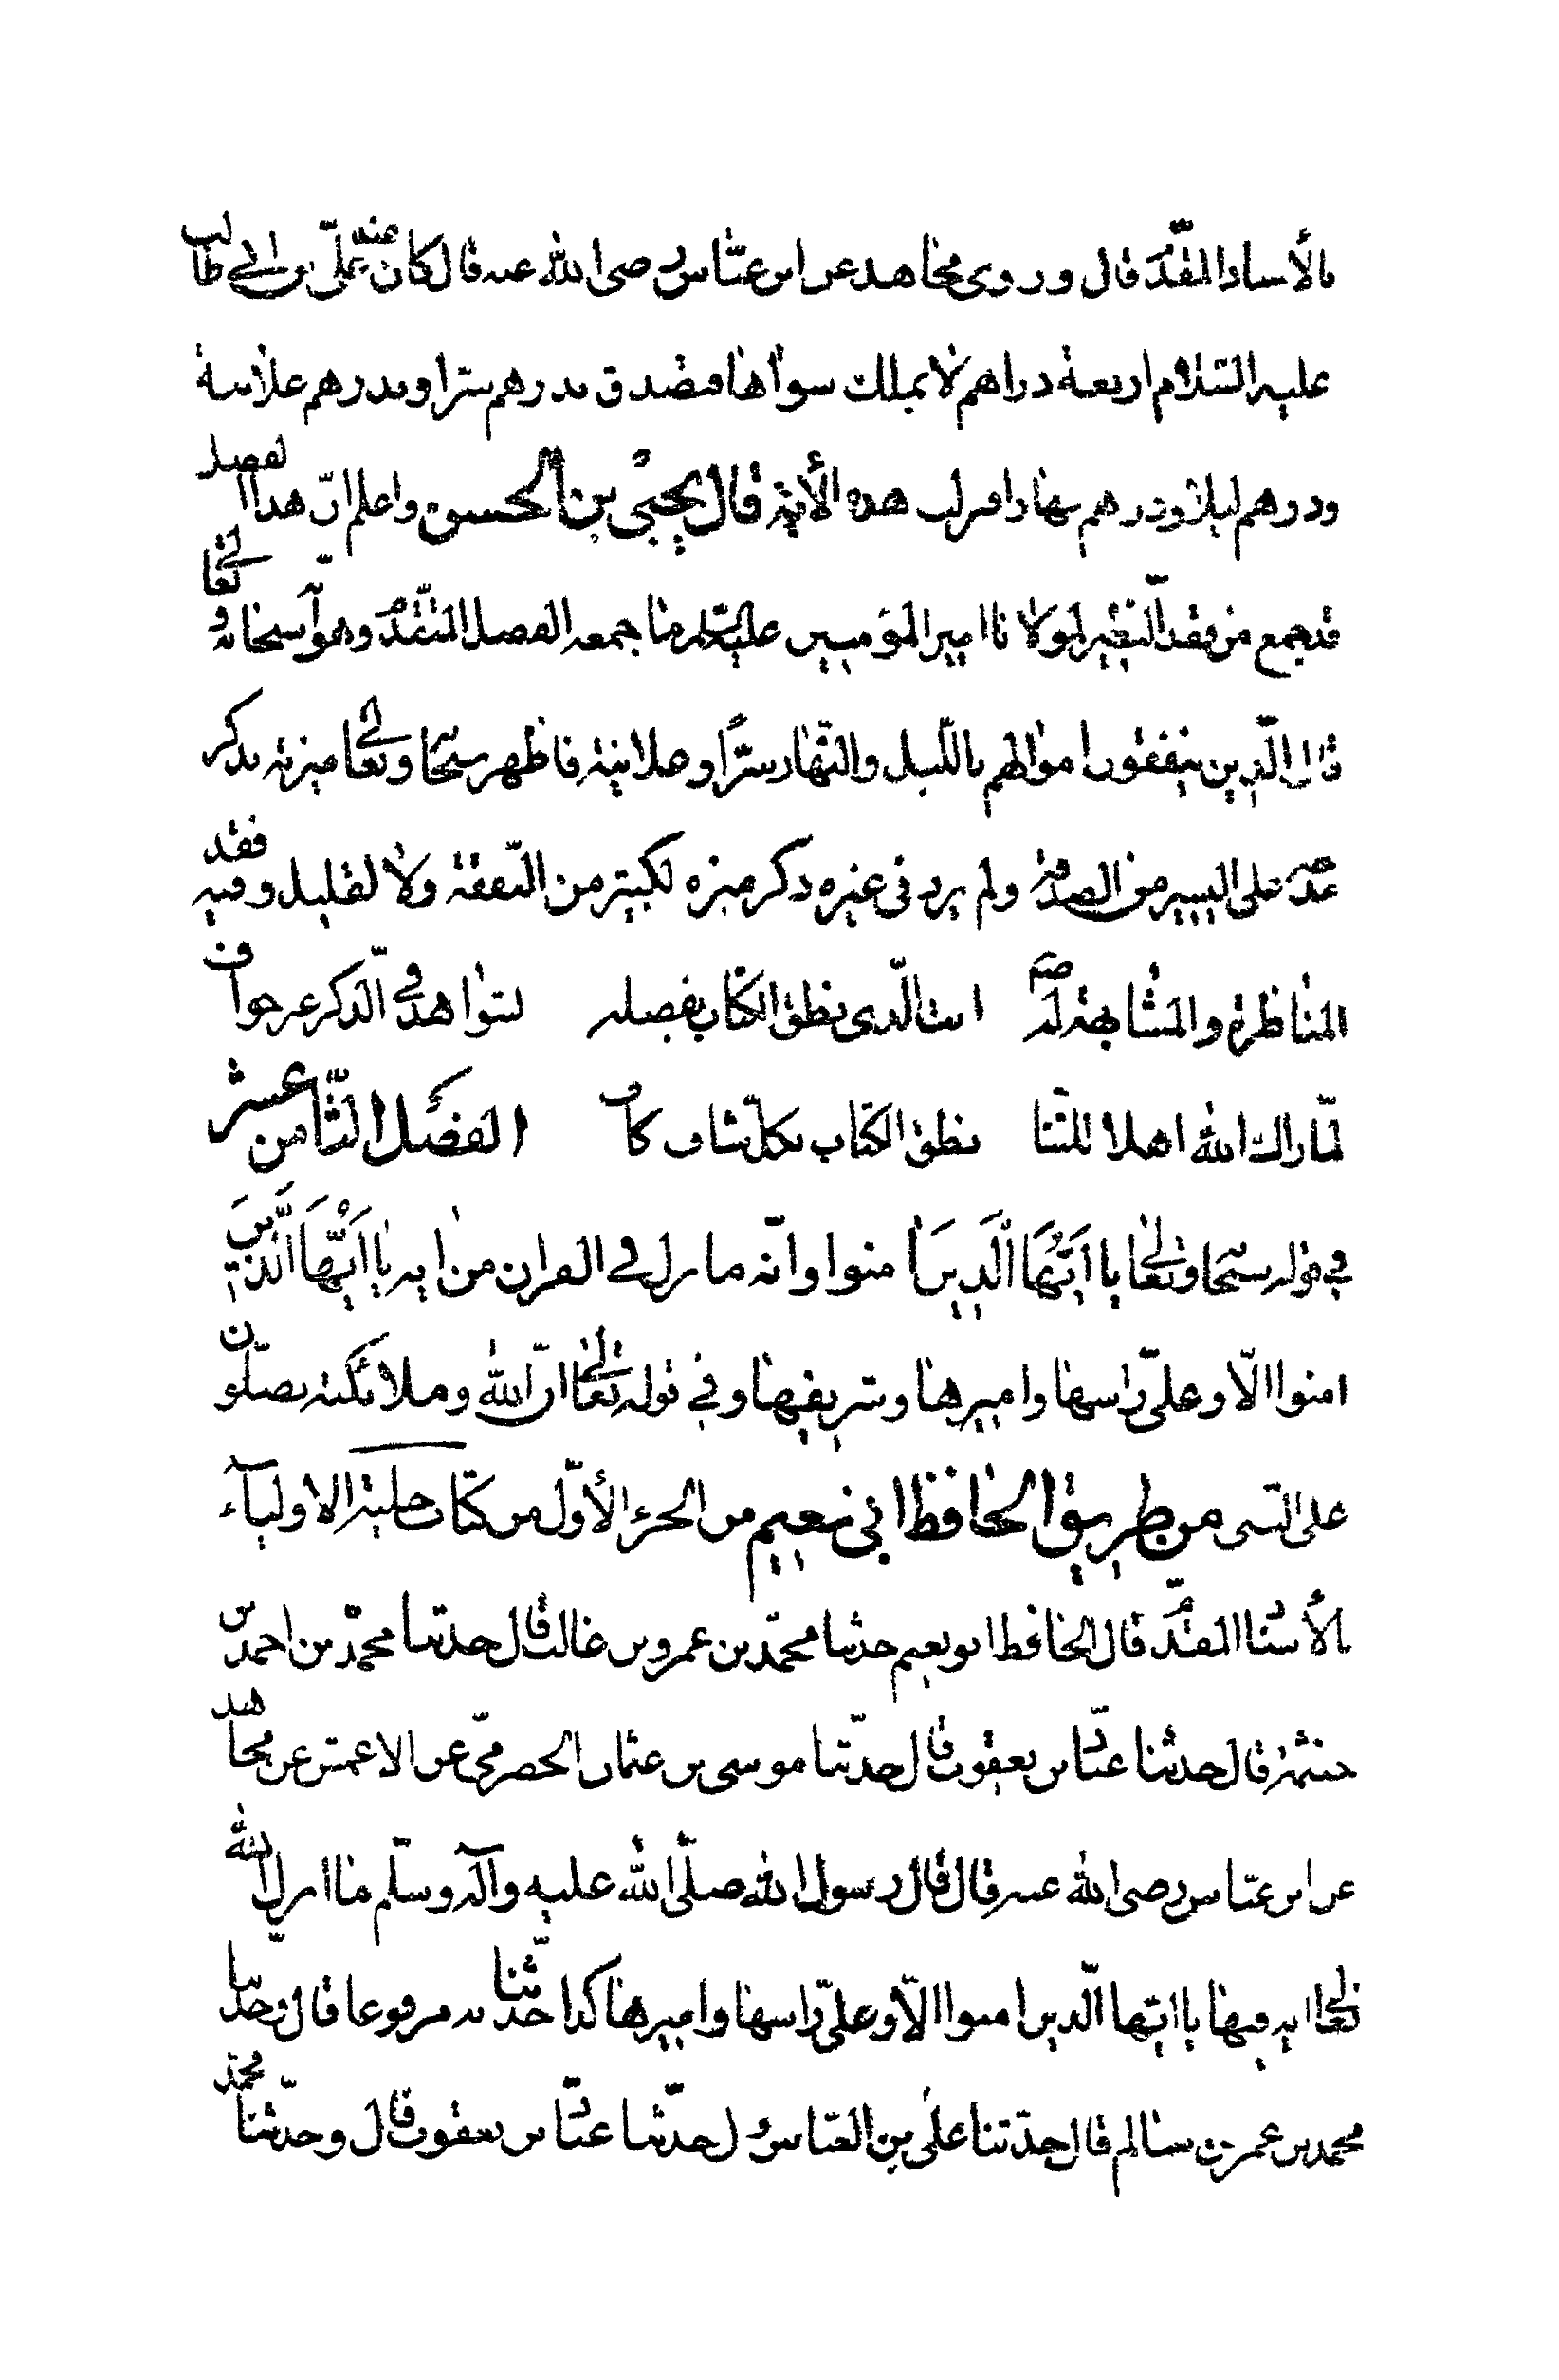 بالأسناد المقدّم قال وروى مجاهد عن ابن عبّاس رضى الله عنه قال كان عند علىّ بن ابي طالب
عليه السّلام اربعة دراهم لا يملك سواها فتصدق بدرهم سرا وبدرهم علانية
ودرهم ليلا ودرهم نهارا فنزلت هذه الأية قال يحيى بن الحسن واعلم انّ هذا الفصل
قد جمع من فقد النّظير لمولانا امير المؤمنين عليه السلم ما جمعه الفصل المتقدّم وهو انّه سبحانه وتعالى
قال الّذين ينفقون اموالهم باللّيل والنّهار سرّا وعلانية فاظهر سبحانه وتعالى ميزته بذكر
صدقته على اليسير من الصدقة ولم يرد في غيره ذكر ميزه لكثير من النّفقة ولا لقليل وفيه فقد
المناظرة والمشابهة له انت الّذى نطق الكتاب بفضله لشواهد في الّذكر غير خوافٍ
لمّا راك الله اهلا للثنا نطق الكتاب بكلّ شاف كاف الفصل الثّامن عشر
في قوله سبحانه وتعالى يا ايّها الّذين امنوا وانّه ما نزل في القران من اية يا ايّها الّذين
امنوا الّا وعلىّ راسها واميرها وشريفها وفي قوله تعالى انّ الله وملائكته يصلّون
على النّبى من طريق الحافظ ابي نعيم من الجزء الأوّل من كتاب حلية الاولياء
بالأسناد المقدّم قال الحافظ ابو نعيم حدثنا محمّد بن عمرو بن غالب قال حدثنا محمّد بن احمد بن
خيثمة قال حدثنا عبّاد بن يعقوب قال حدّثنا موسى بن عثمان الحضرمىّ عن الاعمش عن مجاهد
عن ابن عبّاس رضى الله عنه قال قال رسول الله صلّى الله عليه وآله وسلّم ما انزل الله
تعالى اية فيها يا ايّها الّذين امنوا الّا وعلىّ راسها واميرها كذا حدّثنا به مرفوعا قال وحدّثنا
محمد بن عمر بن سالم قال حدّثنا على بن العبّاس قال حدّثنا عبّاد بن يعقوب قال وحدّثنا محمّد